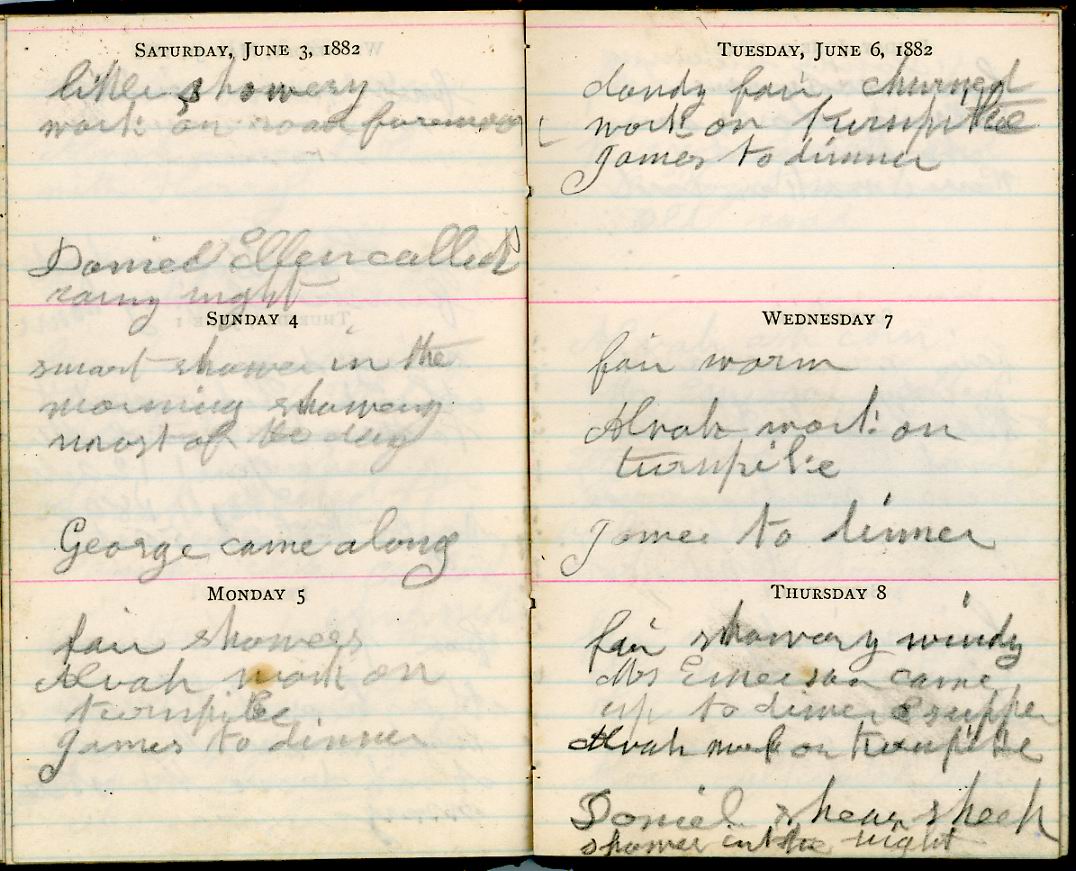 SATURDAY, JUNE 3, 1882
little showery
work on road forenoon
Daniel Ellen called
rainy night
SUNDAY 4
smart shower in the
morning showery
most of the day
George came along
MONDAY 5
fair showers
Alvah work on
turnpike
James to dinner
TUESDAY, JUNE 6, 1882
dandy fair churned
work on turnpike
James to dinner
WEDNESDAY 7
fair warm
Alvah work on
turnpike
James to dinner
THURSDAY 8
fair showery windy
Mrs Emerson came
up to dinner & supper
Alvah work on turnpike
Daniel shear sheep
shower in the night